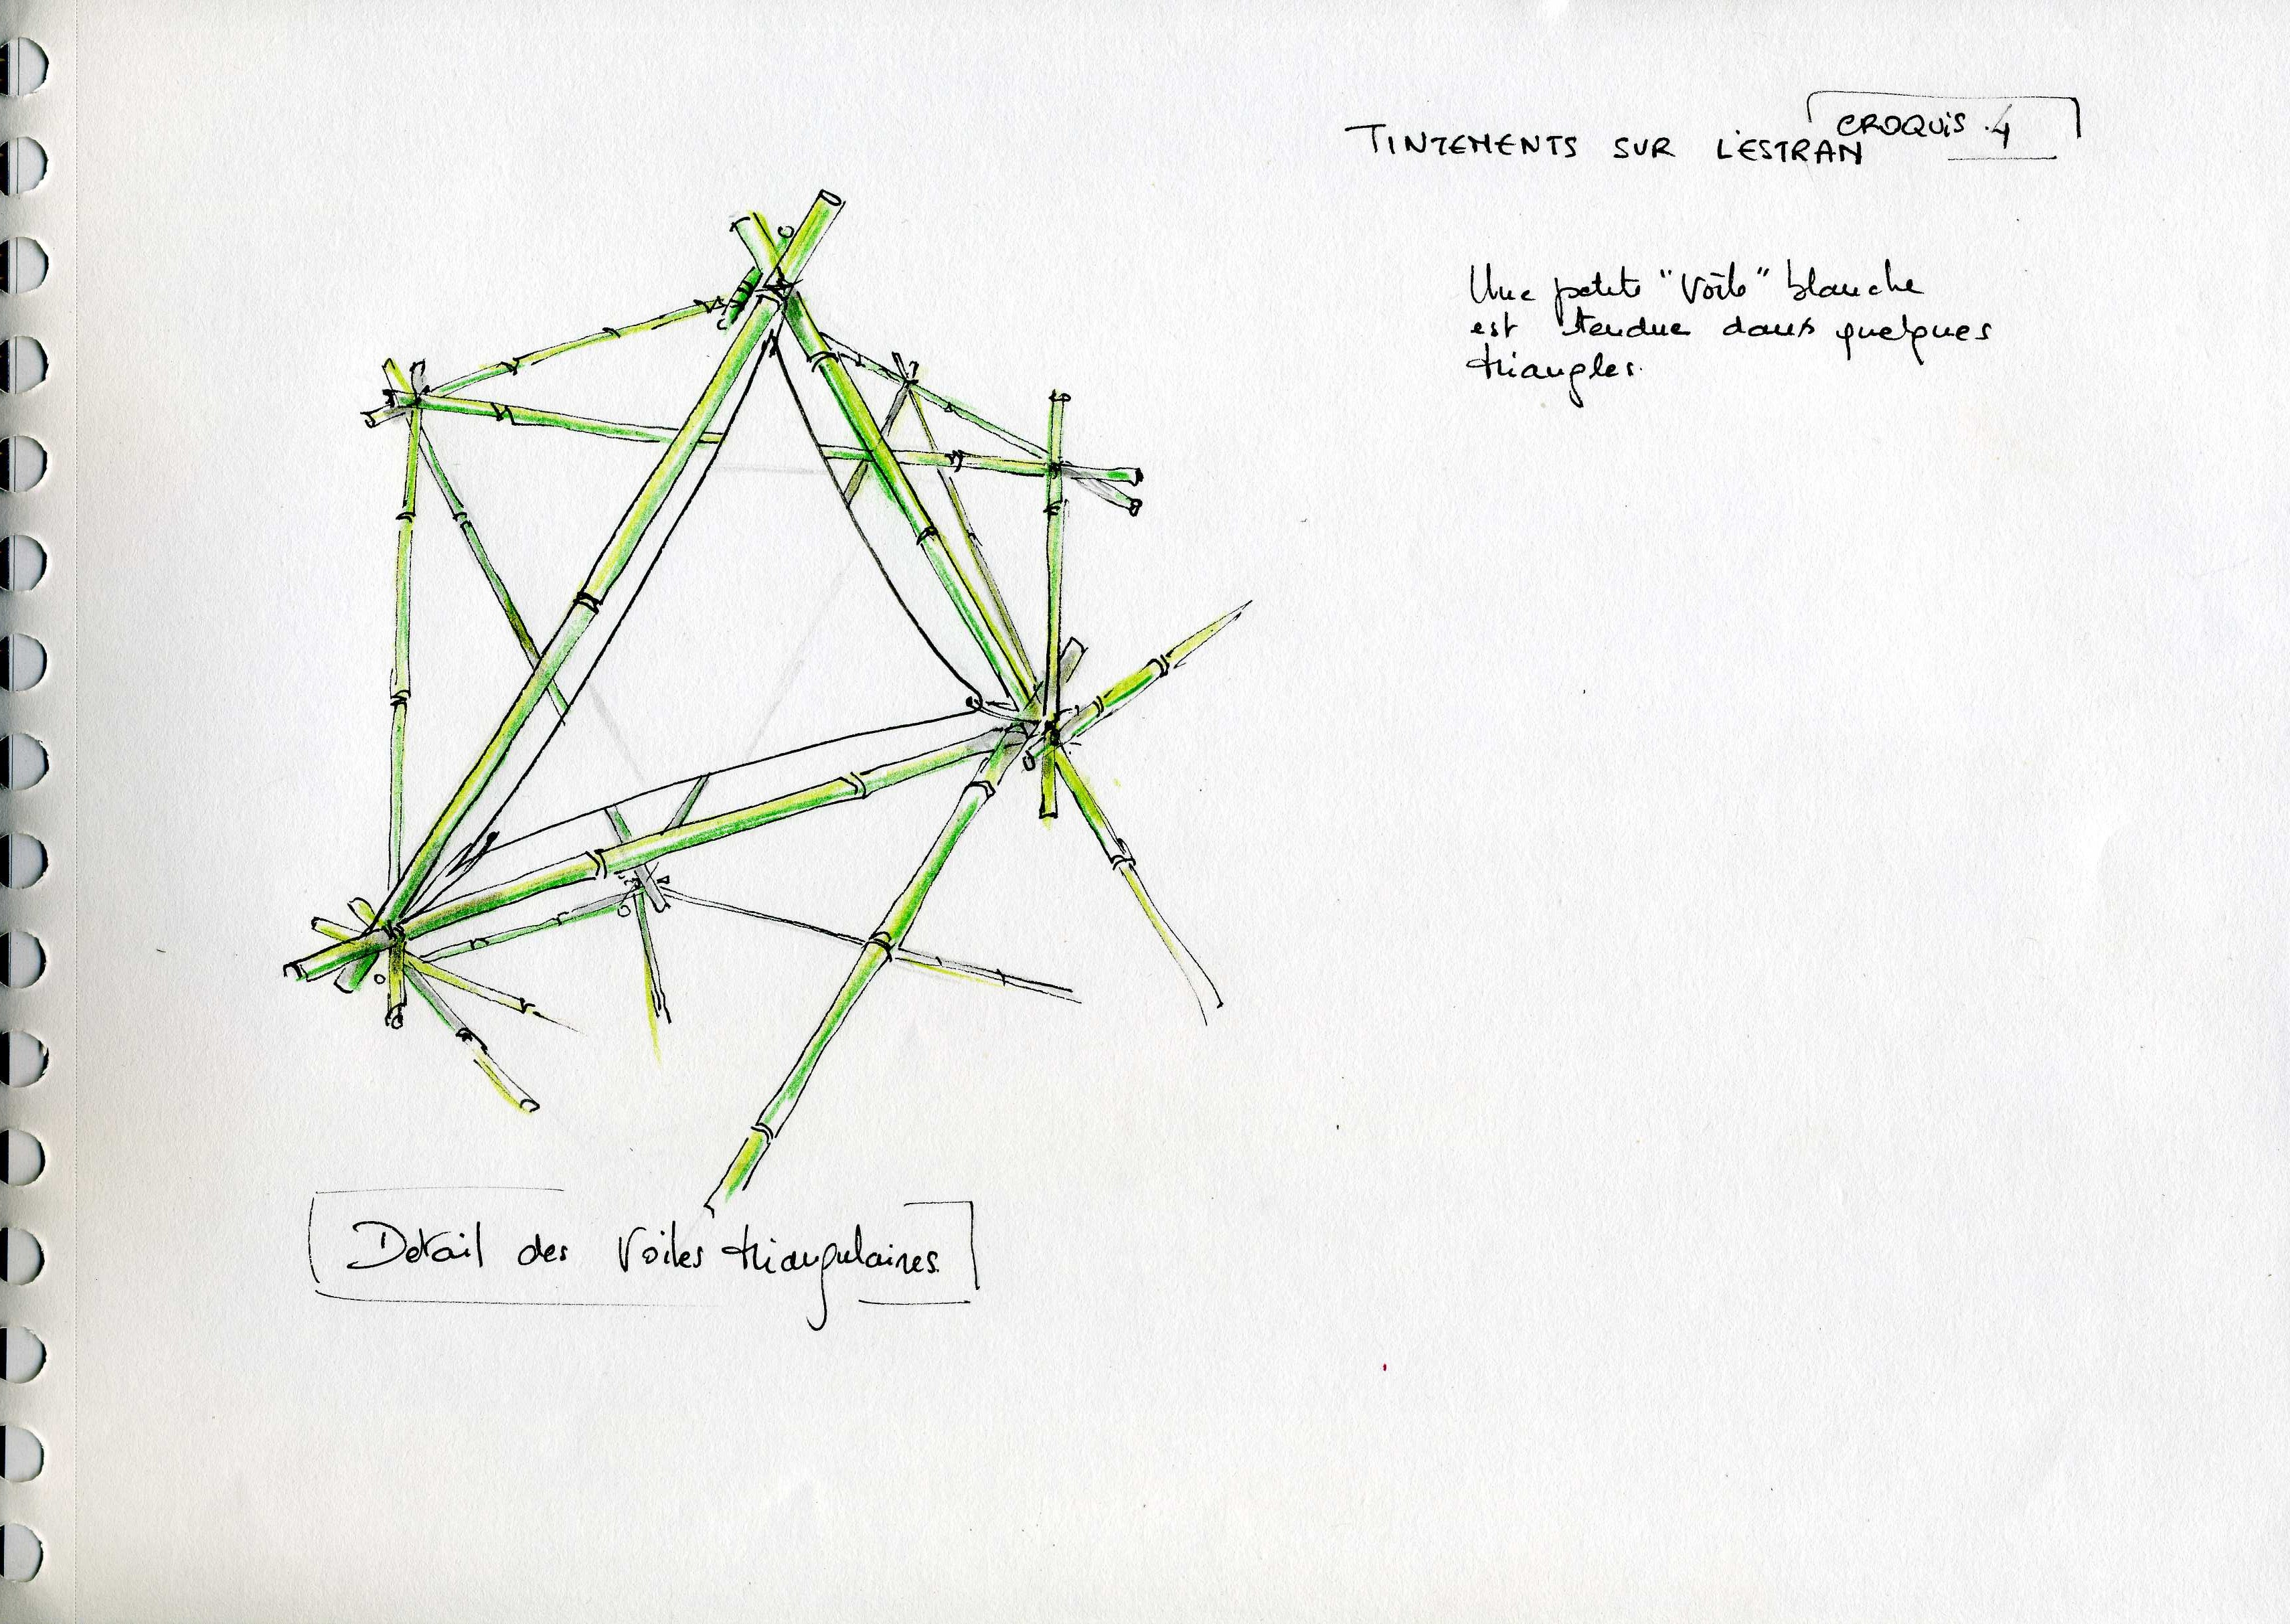 CROQUIS. 4
TINTEMENTS SUR L'ESTRAN
Une petite "Voile" blanche
est tendue dans quelques
triangles.
Détail des Voiles triangulaires.